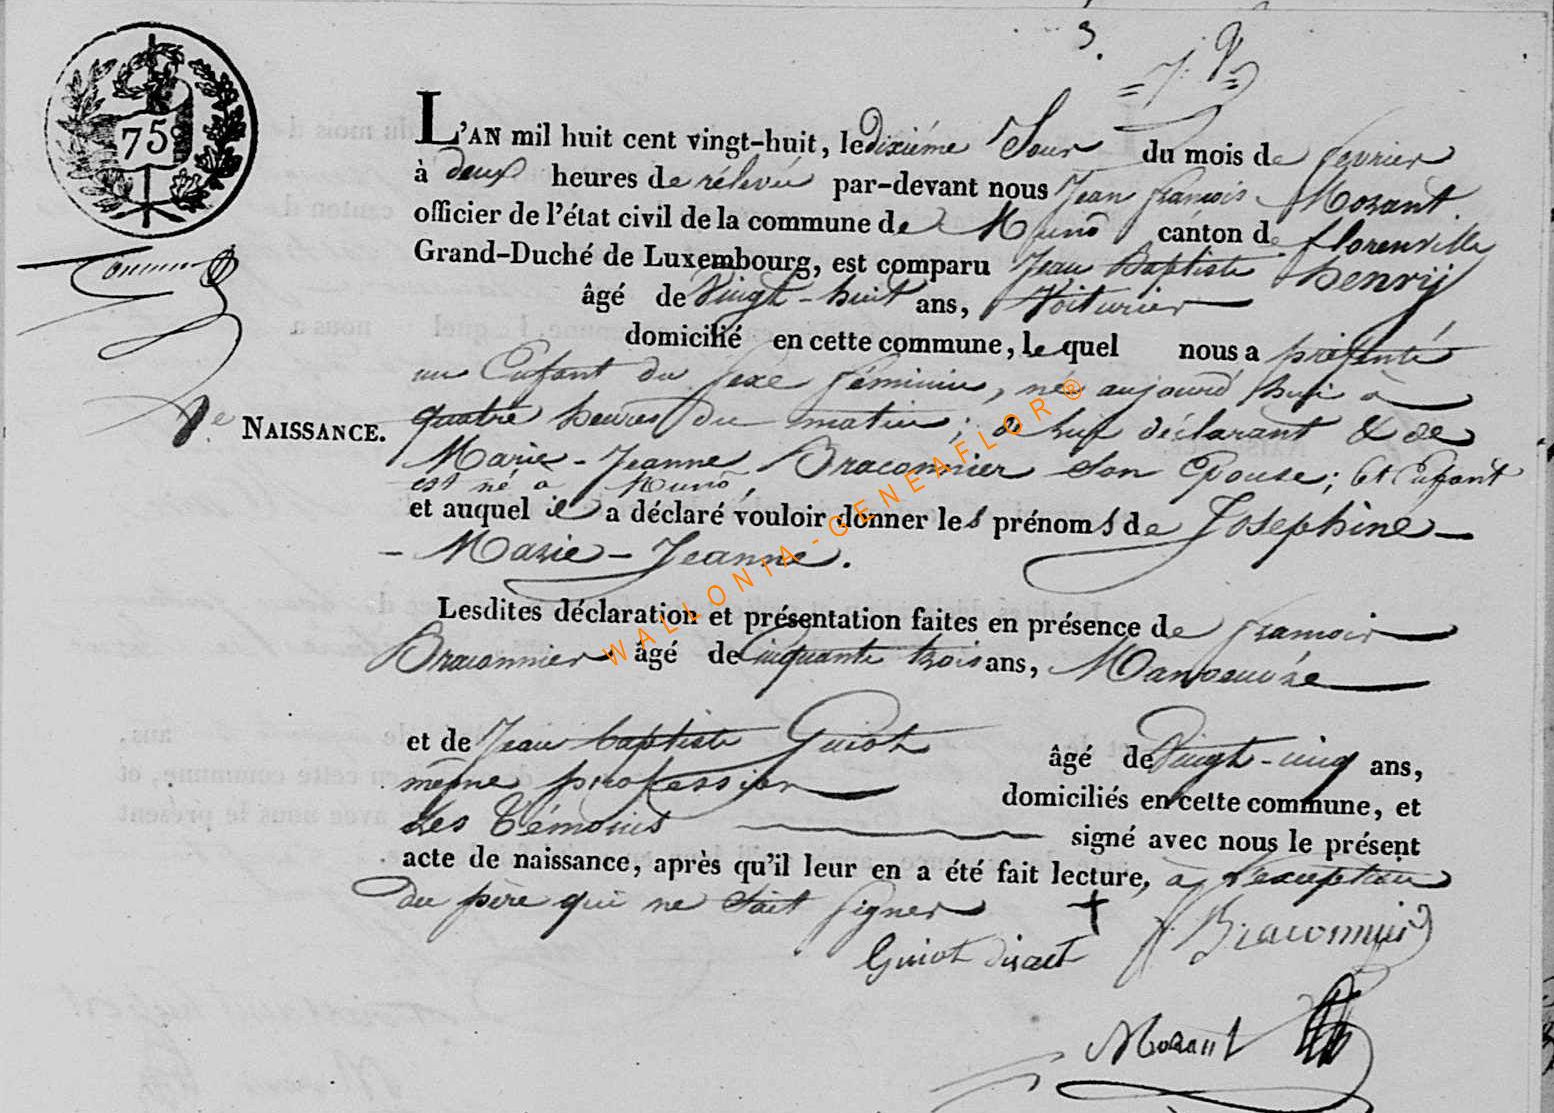 3.
75
L'AN mil huit cent vingt-huit, le dixiéme Jour du mois de fevrier
à deux heures de rélévée par-devant nous Jean françois Mozant
officier de l'état civil de la commune de Muno canton de florenville
Grand-Duché de Luxembourg, est comparu Jean Baptiste henrij
âgé de Vingt-huit ans, Voiturier
domicilié en cette commune, le quel nous a présenté
un Enfant du sexe féminin, né aujourd'hui à
NAISSANCE. quatre heures du matin; de lui déclarant & de
Marie-Jeanne Braconnier son Epouse; Cet Enfant
est né a Muno,
et auquel il a déclaré vouloir donner les prénoms de Josephine
Marie-Jeanne.
Lesdites déclaration et présentation faites en présence de françois
Braconnier âgé de Cinquante trois ans, Manoeuvre
et de Jean baptiste Guiot âgé de Vingt-cinq ans,
même profession domiciliés en cette commune, et
Les Témoins signé avec nous le présent
acte de naissance, après qu'il leur en a été fait lecture, à l'exception
du père qui ne sait signer
Guiot J Braconnier
Mozant
WALLONIA-GENEAFLOR®